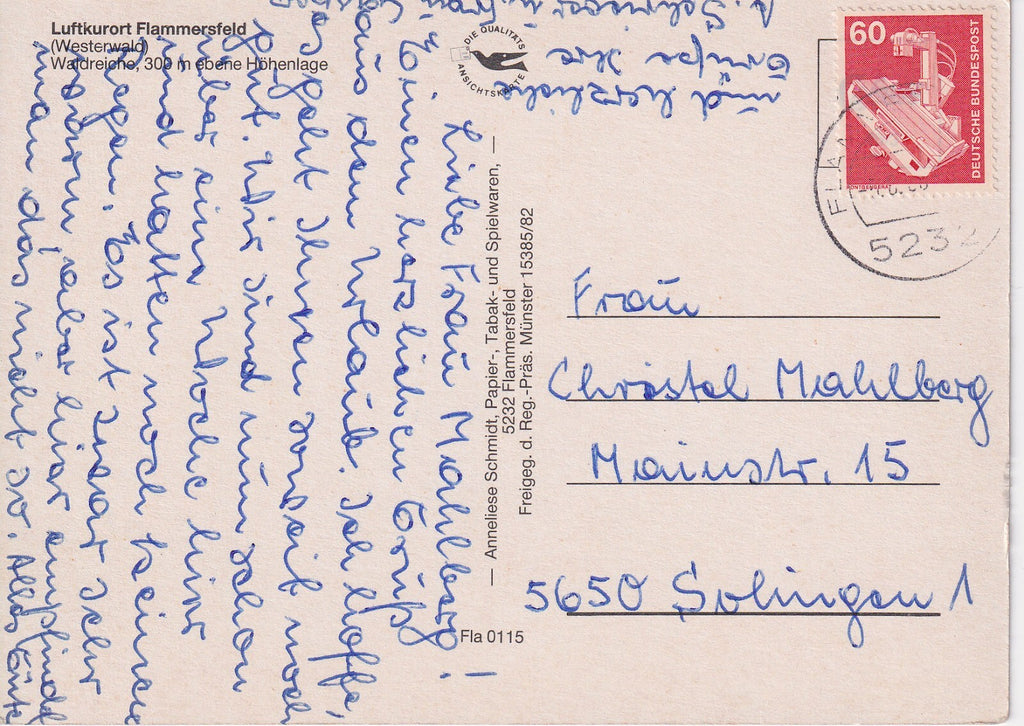 Luftkurort Flammersfeld
(Westerwald)
Waldreiche, 300 m ebene Höhenlage
DIE QUALITÄTS
ANSICHTSKARTE
Liebe Frau Mahlberg!
Einen herzlichen Gruß
aus dem Urlaub. Ich hoffe,
es geht Ihnen soweit noch
gut. Wir sind nun schon
über eine Woche hier
und hatten noch keinen
Regen. Es ist zwar sehr
warm, aber hier empfindet
man das nicht so. Alles Gute
und herzliche
Grüße Ihre
— Anneliese Schmidt, Papier-, Tabak- und Spielwaren, —
5232 Flammersfeld
Freigeg. d. Reg.-Präs. Münster 15385/82
Fla 0115
60
DEUTSCHE BUNDESPOST
RÖNTGENGERÄT
5232
Frau
Christel Mahlberg
Mainstr. 15
5650 Solingen 1